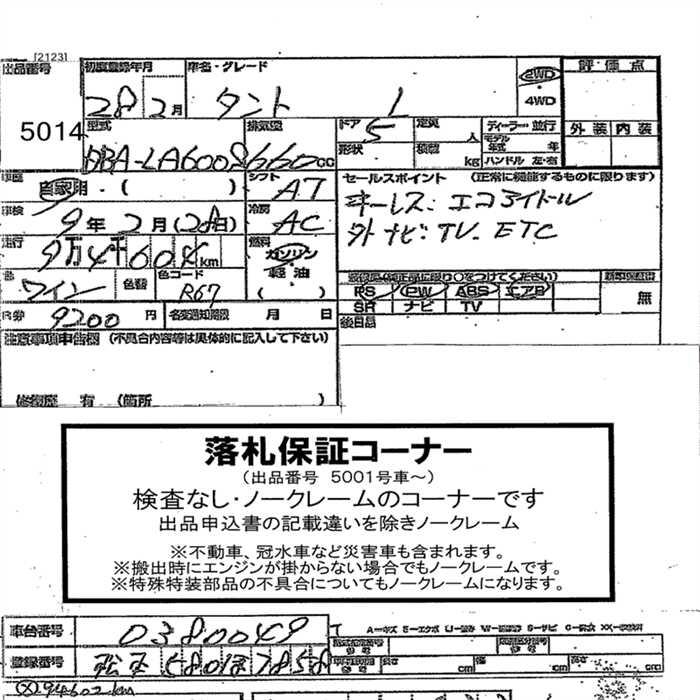 [2123]
出品番号 初度登録年月 車名・グレード 2WD 評価点
5014 28 2月 タント 4WD
型式 排気量 ドア 定員 ディーラー・並行 外装 内装
DBA-LA600S 660cc 5 人 モデル年式 年
形状 積載 kg ハンドル 左・右
自家用・( ) シフト AT セールスポイント (正常に機能するものに限ります)
車検 9年2月(28日) 冷房 AC キーレス: エコアイドル
走行 9万4千604km 燃料 ガソリン 外ナビ: TV. ETC
軽油
色 ワイン 色替 色コード R67 ( )
装備品(純正品に限り○をつけてください) 新車保証書
PS PW ABS エアB 無
SR ナビ TV
R券 9200 円 名変通知期限 月 日 後日品
注意事項申告欄 (不具合内容等は具体的に記入して下さい)
修復歴 有 (箇所 )
落札保証コーナー
(出品番号 5001号車～)
検査なし・ノークレームのコーナーです
出品申込書の記載違いを除きノークレーム
※不動車、冠水車など災害車も含まれます。
※搬出時にエンジンが掛からない場合でもノークレームです。
※特殊特装部品の不具合についてもノークレームになります。
車台番号 0380049
登録番号 松本 580 7858
長さ cm 幅 cm 高さ cm
94602km